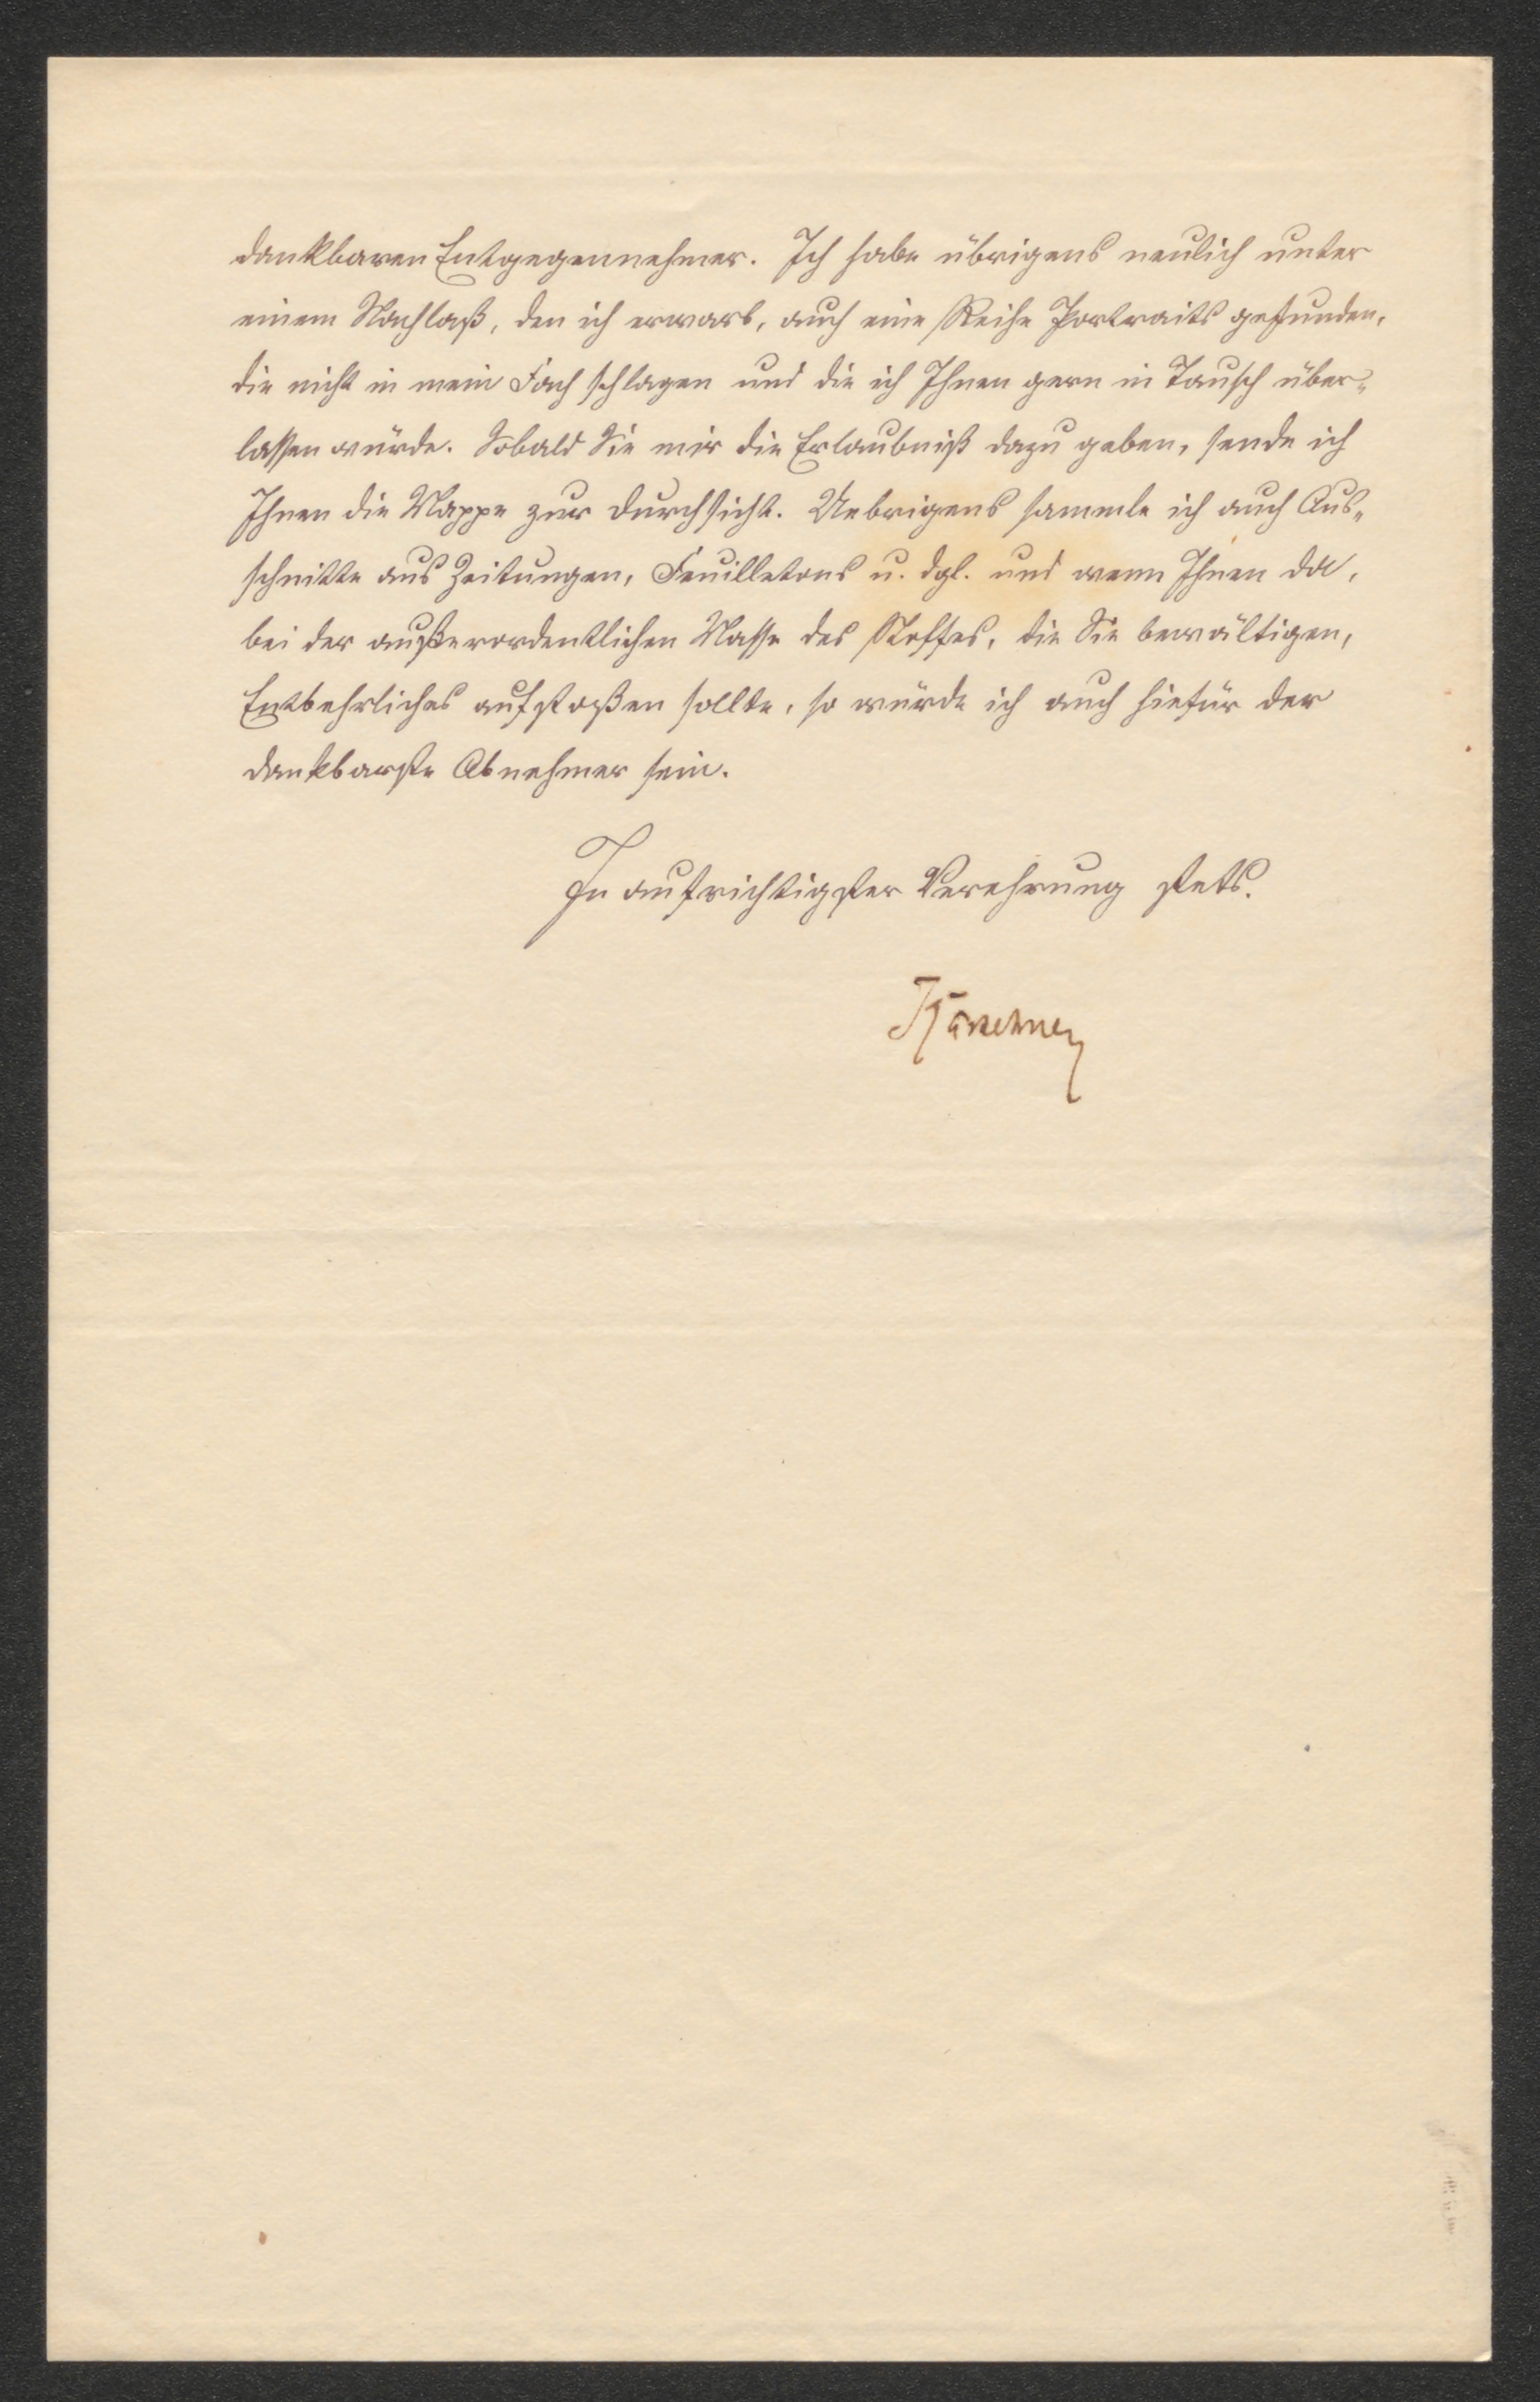 dankbaren Entgegennehmer. Ich habe übrigens neulich unter
einem Nachlaß, den ich erwarb, auch eine Reihe Portraits gefunden,
die nicht in mein Fach schlagen und die ich Ihnen gern in Tausch über-
lassen würde. Sobald Sie mir die Erlaubniß dazu geben, sende ich
Ihnen die Mappe zur Durchsicht. Uebrigens sammle ich auch Aus-
schnitte aus Zeitungen, Feuilletons u. dgl. und wenn Ihnen da,
bei der außerordentlichen Masse des Stoffes, die Sie bewältigen,
Entbehrliches aufstoßen sollte, so würde ich auch hiefür der
dankbarste Abnehmer sein.
In aufrichtigster Verehrung stets.
Kürschner